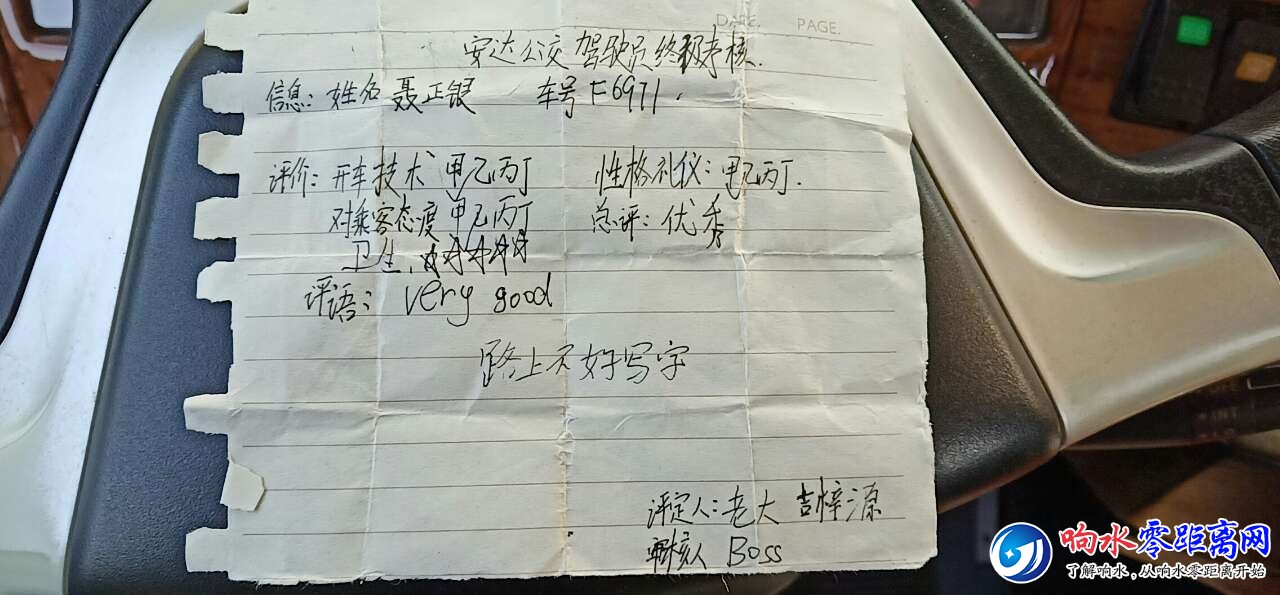 DATE. PAGE.
安达公交 驾驶员终极考核.
信息: 姓名 聂正银 车号 F6971.
评价: 开车技术 甲乙丙丁 性格礼仪: 甲乙丙丁.
对乘客态度 甲乙丙丁 总评: 优秀
卫生,
评语: very good
路上不好写字
评定人: 老大 吉梓源
审核人 Boss
响水零距离网
了解响水,从响水零距离开始